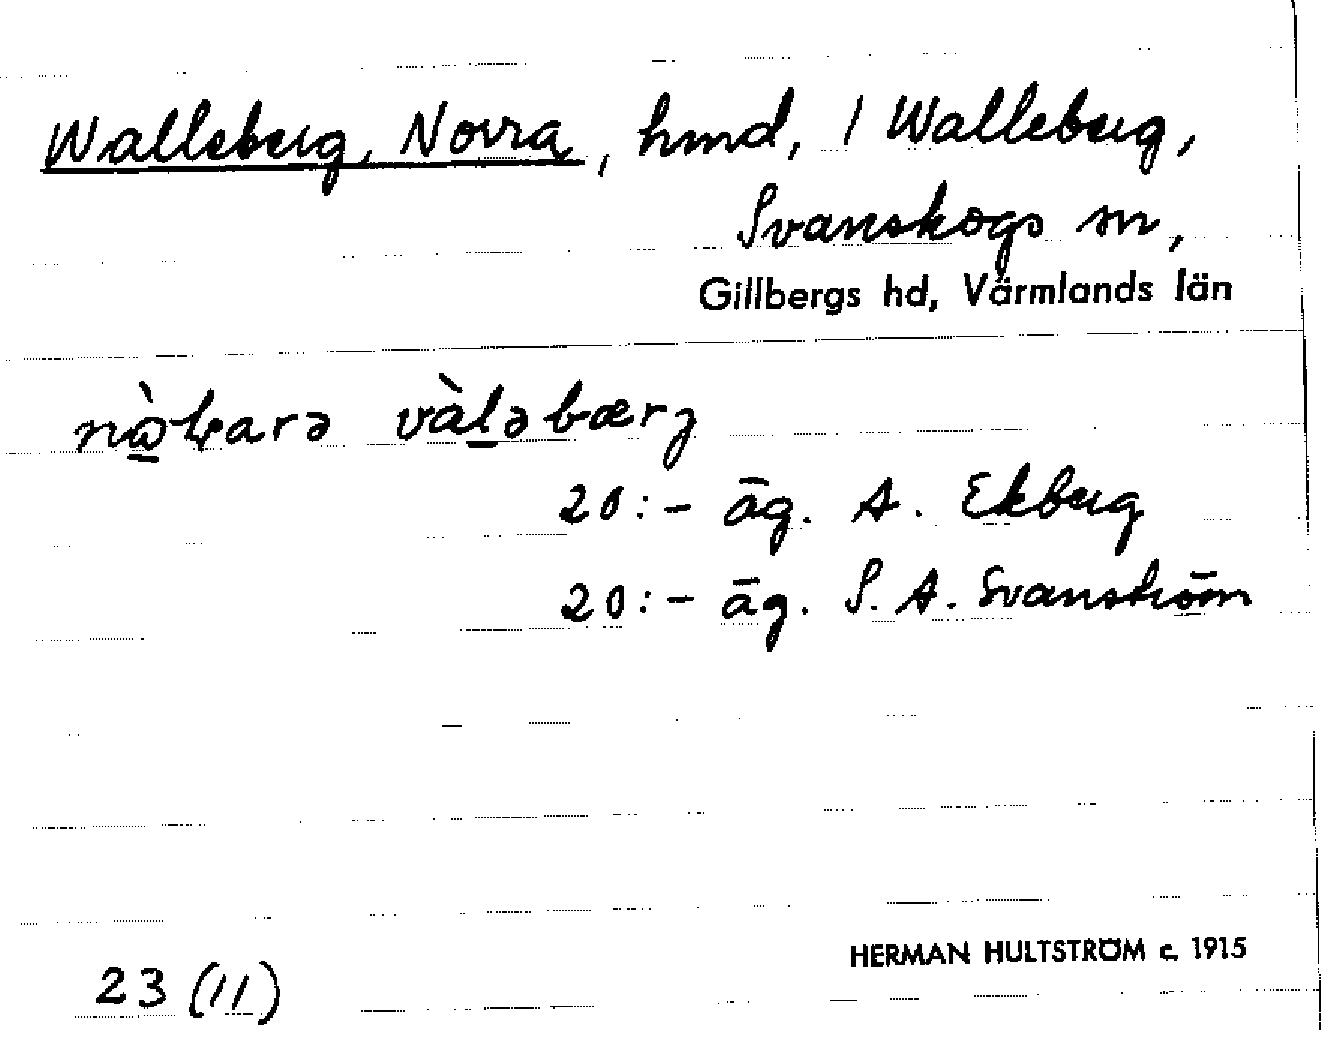 Walleberg, Norra, hmd, 1 Walleberg,
Svanskogs sn,
Gillbergs hd, Värmlands län
vàlәbærj
20:- äg. A. Ekberg
20:- äg. S. A. Svanström
23 (11)
HERMAN HULTSTRÖM c. 1915